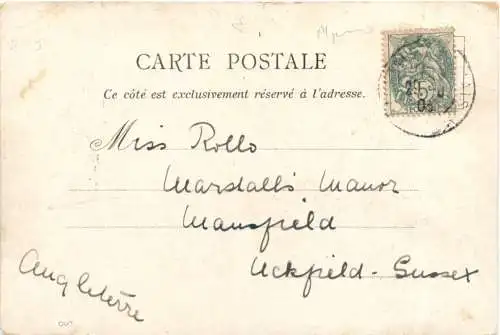 CARTE POSTALE
Ce côté est exclusivement réservé à l'adresse.
Miss Rollo
Marshalls Manor
Mansfield
Uckfield - Sussex
Angleterre